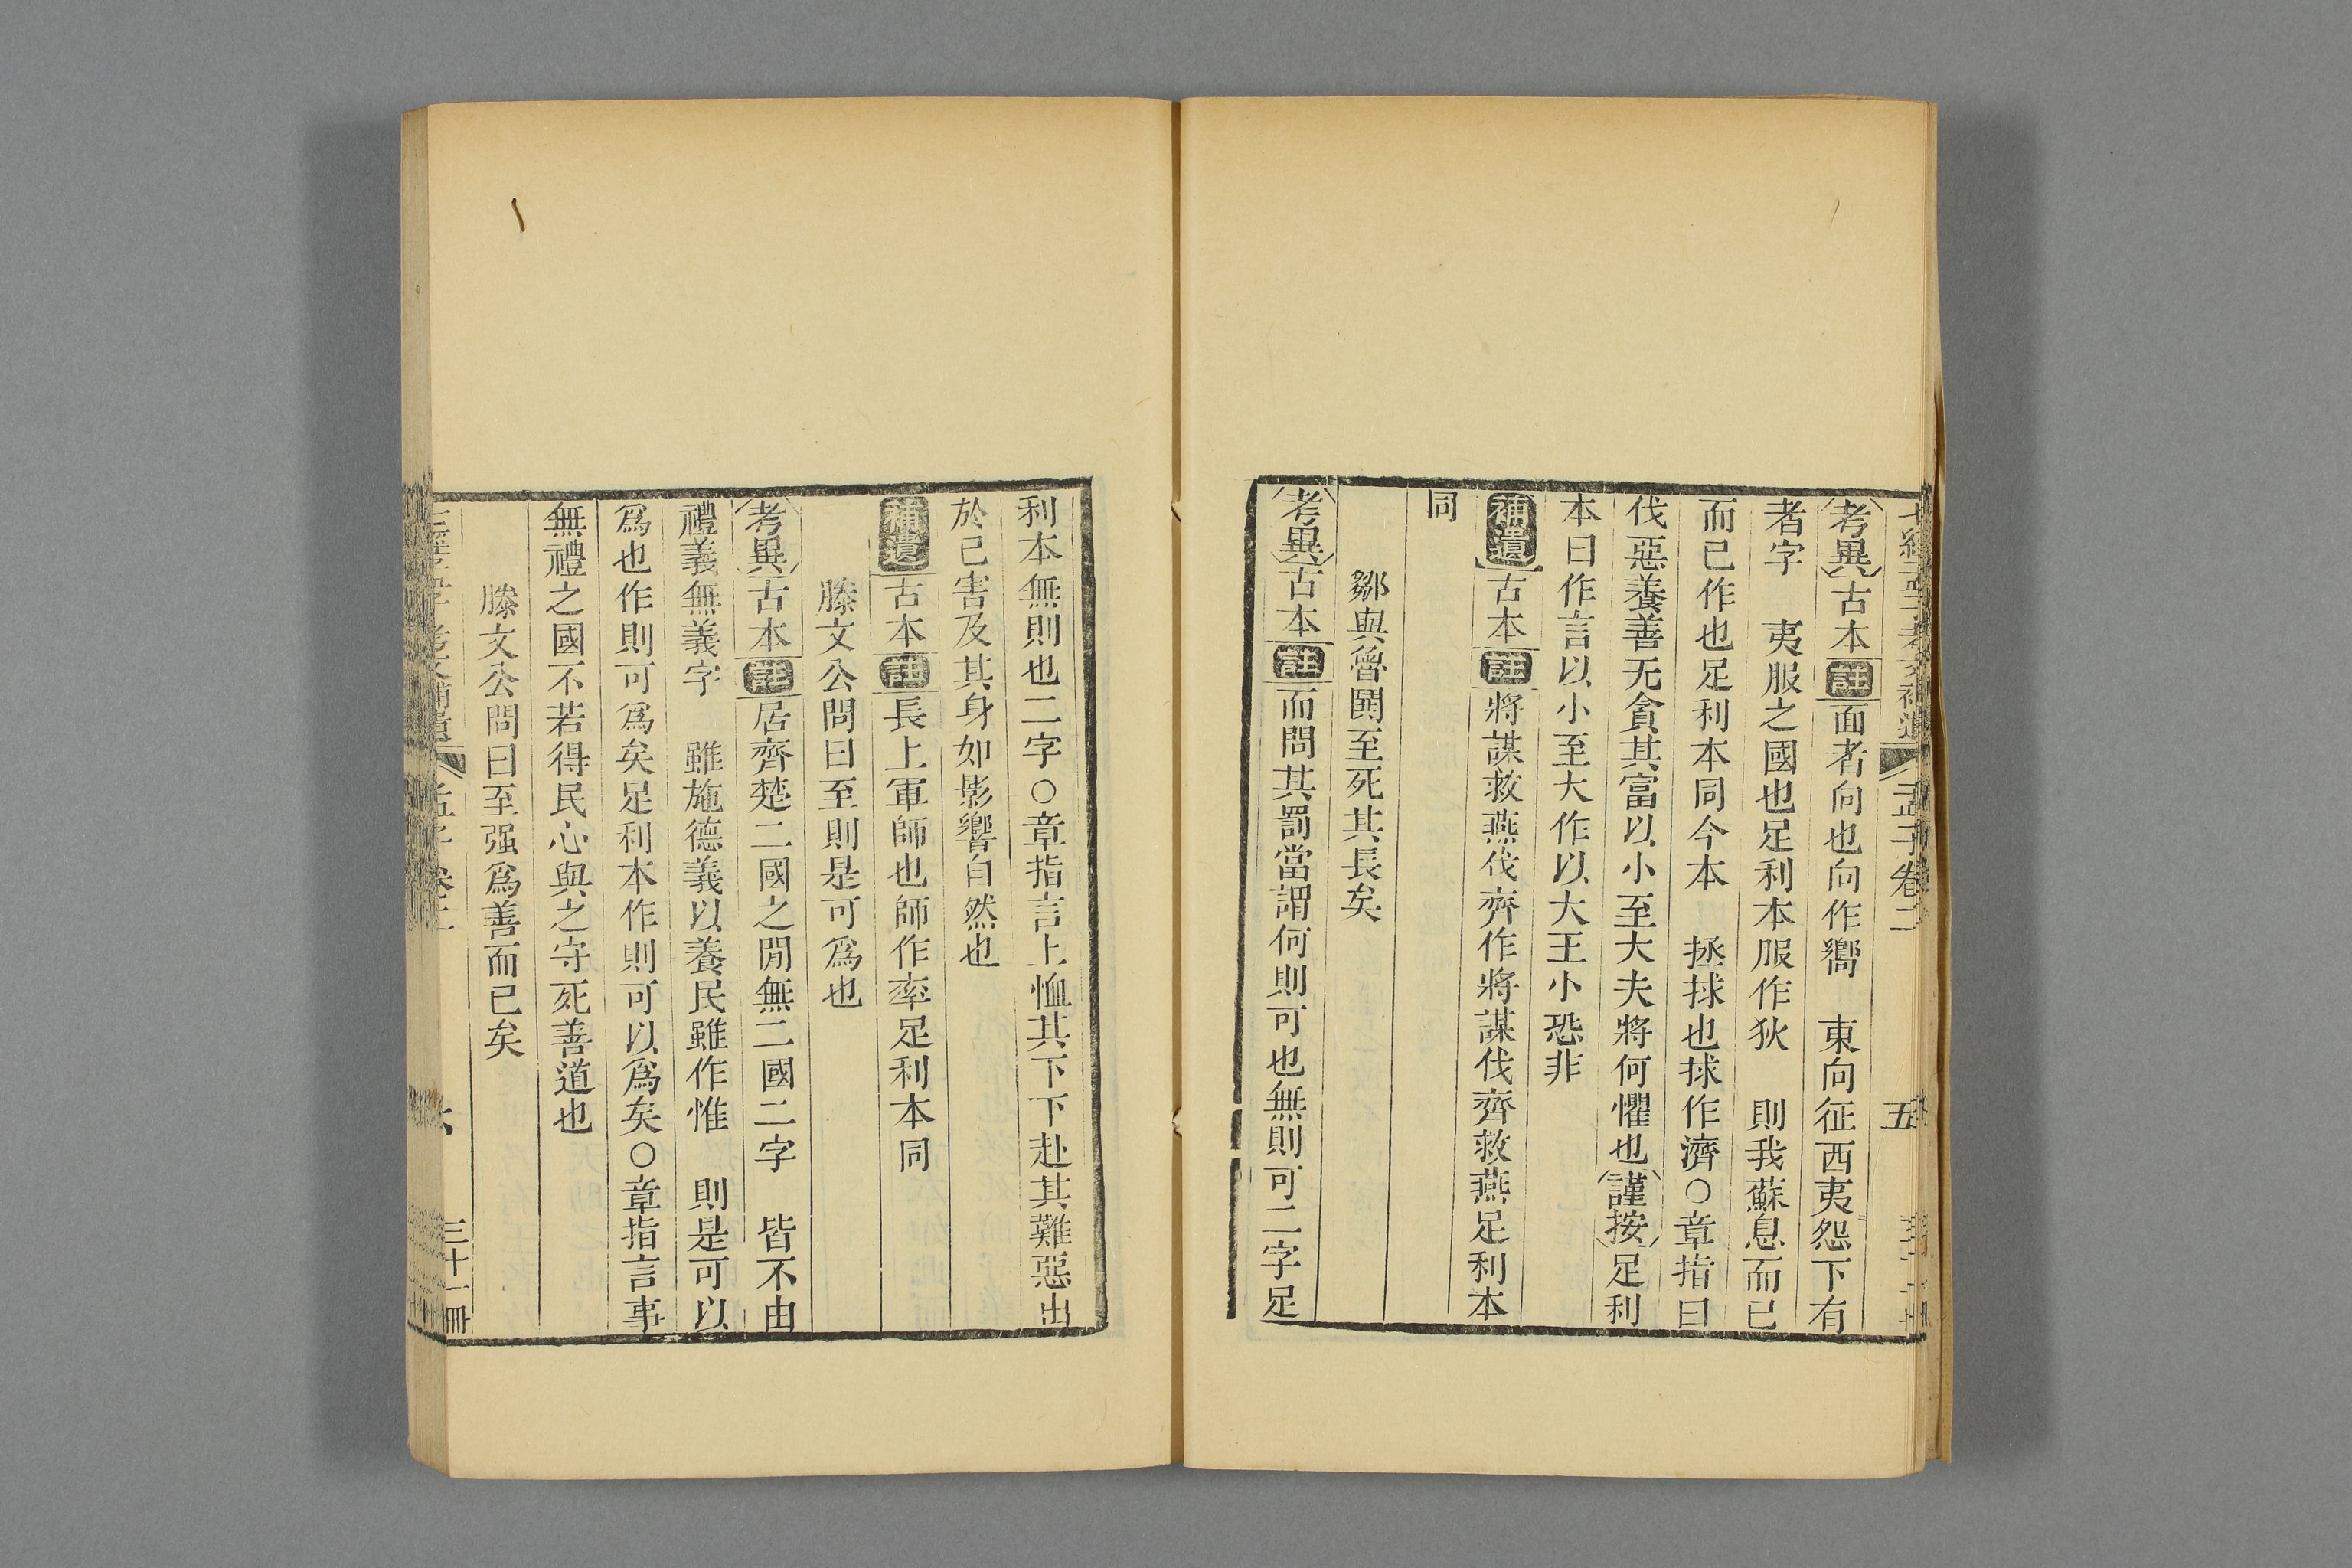 孟子卷二 五
考異古本註面者向也向作嚮 東向征西夷怨下有
者字 夷服之國也足利本服作狄 則我蘇息而已
而已作也足利本同今本 拯捄也捄作濟○章指曰
伐惡養善无貪其富以小至大夫將何懼也謹按足利
本曰作言以小至大作以大王小恐非
補遺古本註將謀救燕伐齊作將謀伐齊救燕足利本
同
鄒與魯鬨至死其長矣
考異古本註而問其罰當謂何則可也無則可二字足
利本無則也二字○章指言上恤其下下赴其難惡出
於己害及其身如影響自然也
補遺古本註長上軍師也師作率足利本同
滕文公問曰至則是可爲也
考異古本註居齊楚二國之閒無二國二字 皆不由
禮義無義字 雖施德義以養民雖作惟 則是可以
爲也作則可爲矣足利本作則可以爲矣○章指言事
無禮之國不若得民心與之守死善道也
滕文公問曰至强爲善而已矣
三十一冊